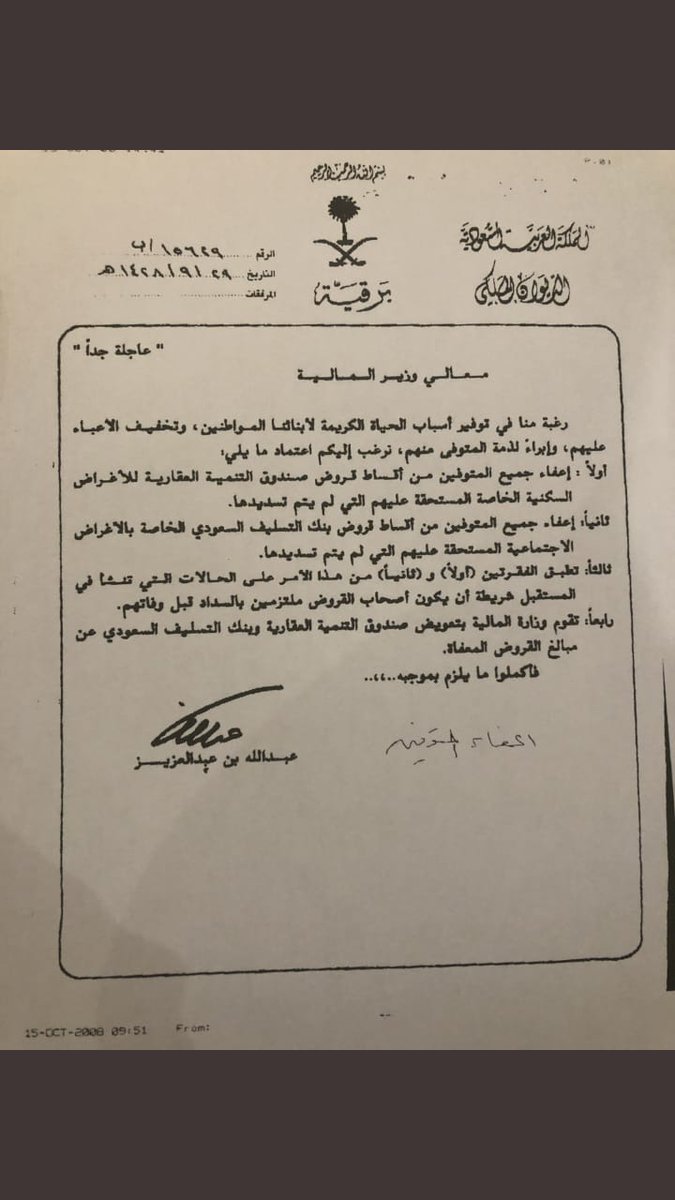 بسم الله الرحمن الرحيم
المملكة العربية السعودية
الديوان الملكي
برقية
الرقم ١٥٦٢٩/ب
التاريخ ١٤٢٨/٩/٢٩هـ
المرفقات
" عاجلة جداً "
معالي وزير المالية
رغبة منا في توفير أسباب الحياة الكريمة لأبنائنا المواطنين، وتخفيف الأعباء
عليهم، وإبراءً لذمة المتوفى منهم، نرغب إليكم اعتماد ما يلي:
أولاً : إعفاء جميع المتوفين من أقساط قروض صندوق التنمية العقارية للأغراض
السكنية الخاصة المستحقة عليهم التي لم يتم تسديدها.
ثانياً: إعفاء جميع المتوفين من أقساط قروض بنك التسليف السعودي الخاصة بالأغراض
الاجتماعية المستحقة عليهم التي لم يتم تسديدها.
ثالثاً: تطبق الفقرتين (أولاً) و (ثانياً) من هذا الأمر على الحالات التي تنشأ في
المستقبل شريطة أن يكون أصحاب القروض ملتزمين بالسداد قبل وفاتهم.
رابعاً: تقوم وزارة المالية بتعويض صندوق التنمية العقارية وبنك التسليف السعودي عن
مبالغ القروض المعفاة.
فأكملوا ما يلزم بموجبه..،،..
اعفاء المتوفين
عبدالله بن عبدالعزيز
15-OCT-2008 09:51 From: